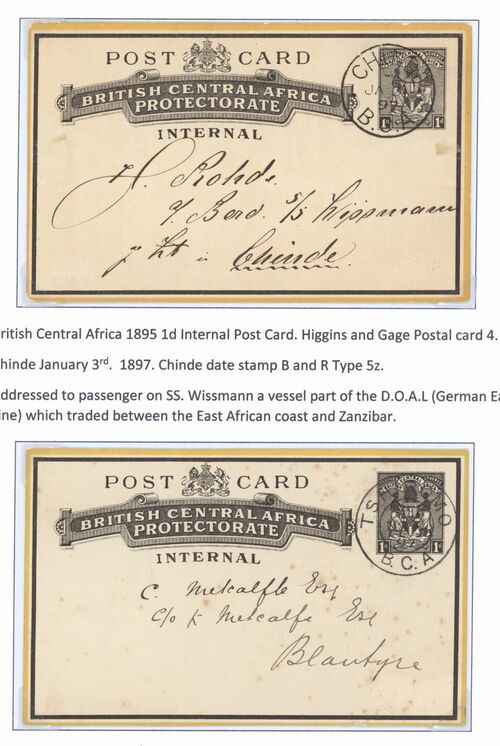 POST CARD
BRITISH CENTRAL AFRICA
PROTECTORATE
INTERNAL
CH
JA
97
B.C.A
1d 1d
H. Rohde.
a/Bord. S/S Wissmann
p. Zt in Chinde.
ritish Central Africa 1895 1d Internal Post Card. Higgins and Gage Postal card 4.
hinde January 3rd. 1897. Chinde date stamp B and R Type 5z.
ddressed to passenger on SS. Wissmann a vessel part of the D.O.A.L (German Ea
ine) which traded between the East African coast and Zanzibar.
POST CARD
BRITISH CENTRAL AFRICA
PROTECTORATE
INTERNAL
TS MO
B.C.A
1d 1d
C. Metcalfe Esq
c/o K Metcalfe Esq
Blantyre